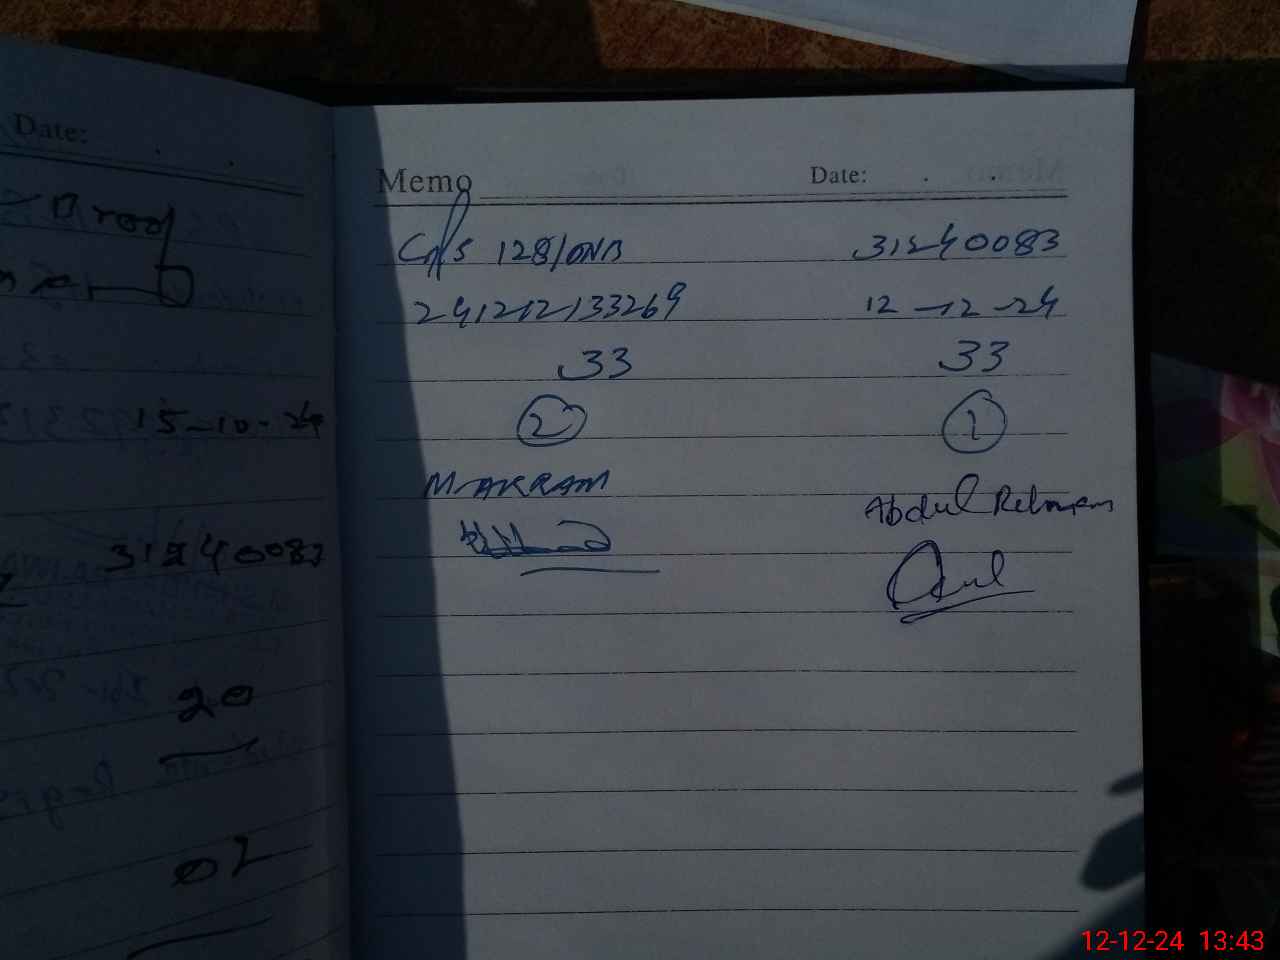 Date:
Proof
15-10-24
31240083
20
02
Memo Date:
128/ONB 31240083
241212133269 12-12-24
33 33
2 1
M. AKRAM Abdul Rehman
12-12-24 13:43